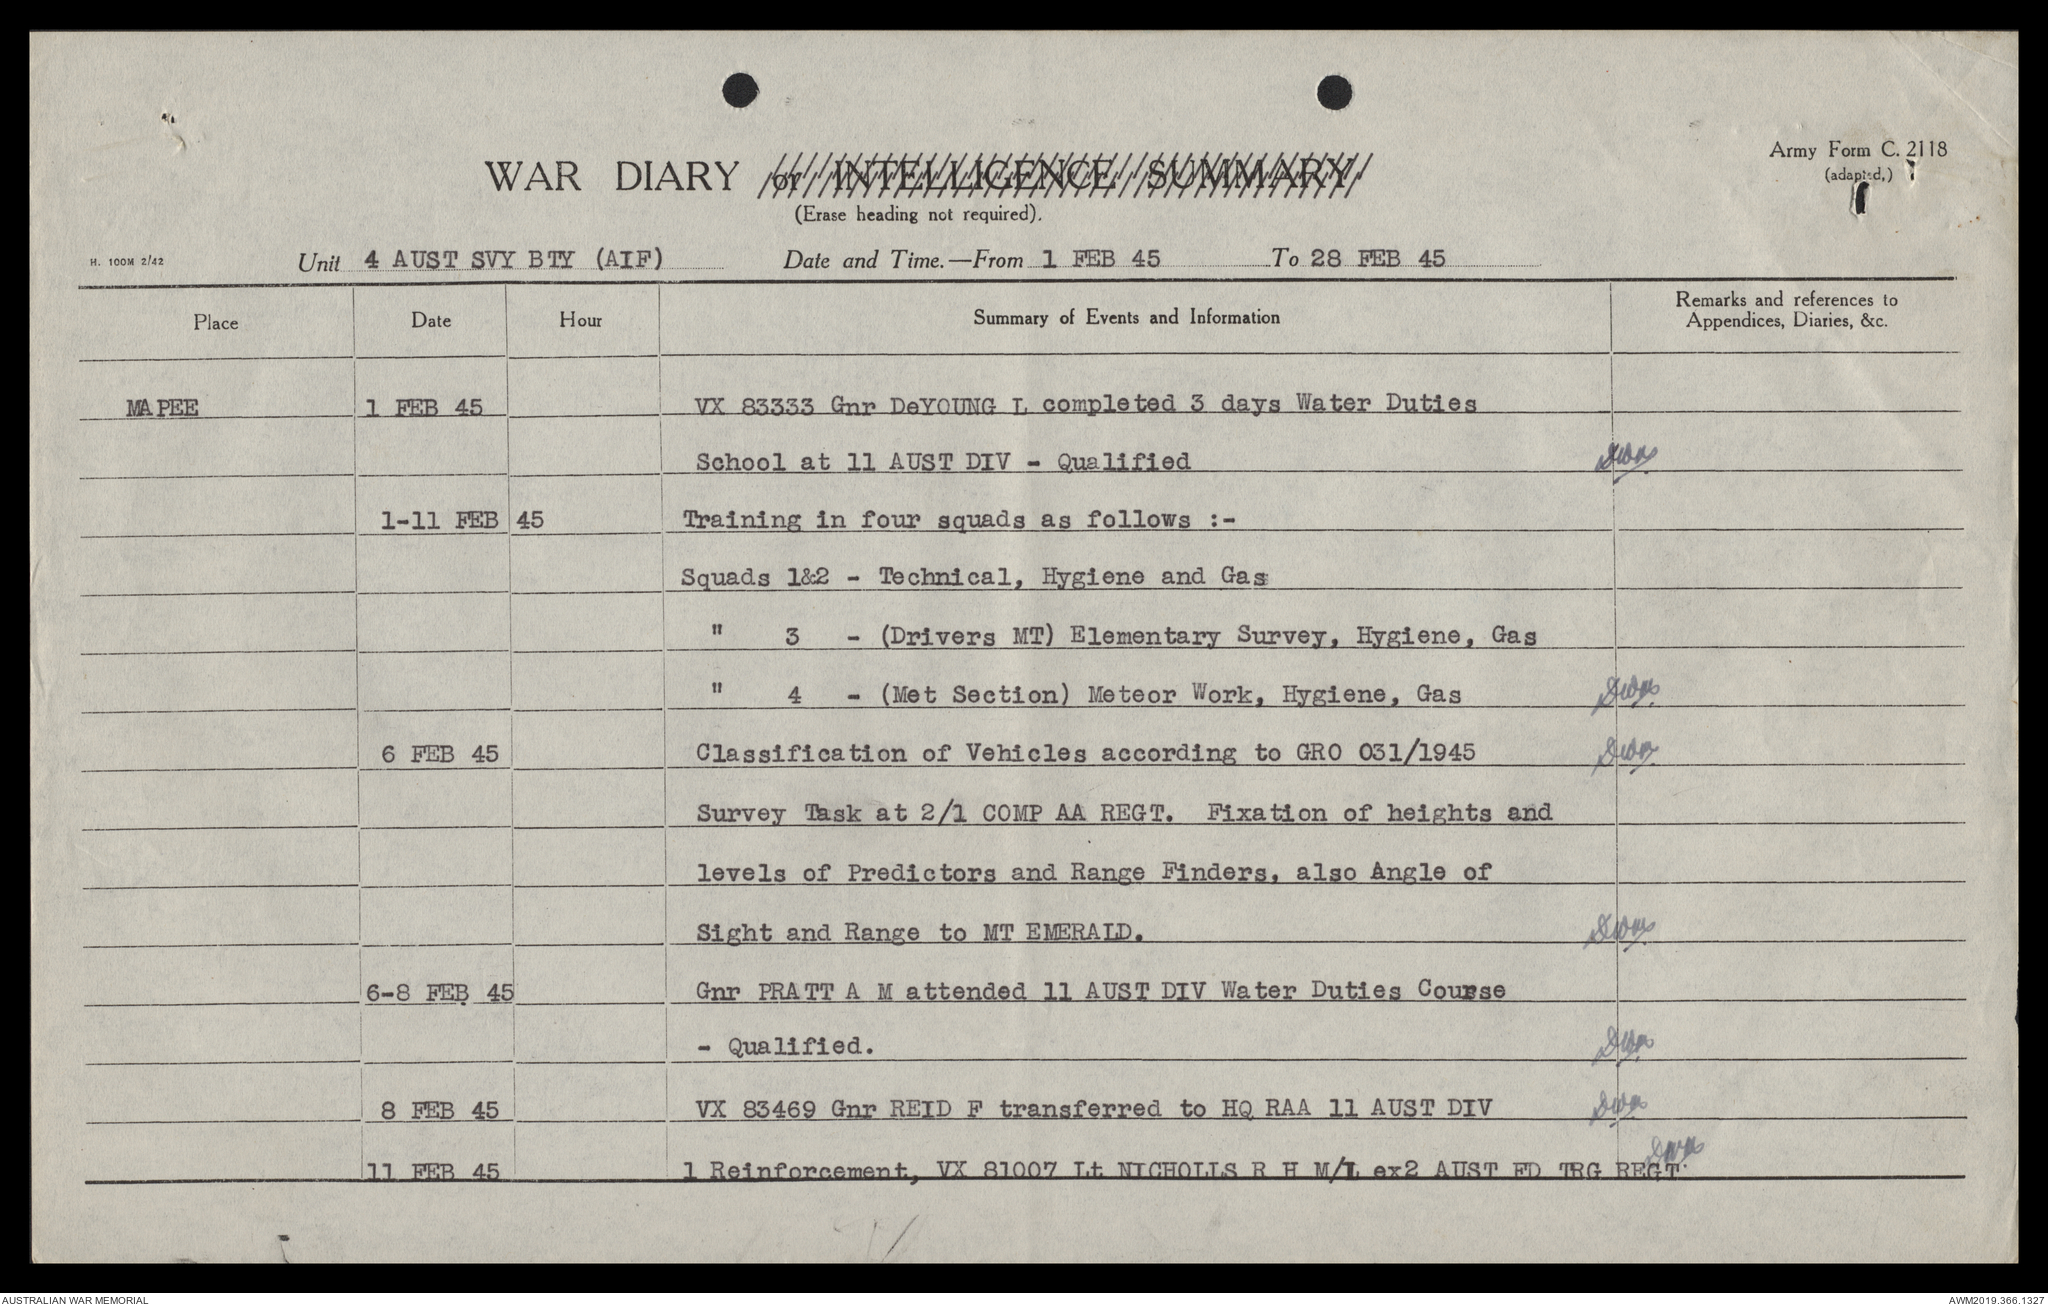 WAR DIARY or INTELLIGENCE SUMMARY
(Erase heading not required).
Army Form C. 2118
(adapted,)
H. 100M 2/42
Unit 4 AUST SVY BTY (AIF) Date and Time.—From 1 FEB 45 To 28 FEB 45
Place Date Hour Summary of Events and Information Remarks and references to
Appendices, Diaries, &c.
MAPEE 1 FEB 45 VX 83333 Gnr DeYOUNG L completed 3 days Water Duties
School at 11 AUST DIV - Qualified
1-11 FEB 45 Training in four squads as follows :-
Squads 1&2 - Technical, Hygiene and Gas
" 3 - (Drivers MT) Elementary Survey, Hygiene, Gas
" 4 - (Met Section) Meteor Work, Hygiene, Gas
6 FEB 45 Classification of Vehicles according to GRO 031/1945
Survey Task at 2/1 COMP AA REGT. Fixation of heights and
levels of Predictors and Range Finders, also Angle of
Sight and Range to MT EMERALD.
6-8 FEB 45 Gnr PRATT A M attended 11 AUST DIV Water Duties Course
- Qualified.
8 FEB 45 VX 83469 Gnr REID F transferred to HQ RAA 11 AUST DIV
11 FEB 45 1 Reinforcement, VX 81007 Lt NICHOLLS R H M/L ex2 AUST FD TRG REGT.
AUSTRALIAN WAR MEMORIAL
AWM2019.366.1327